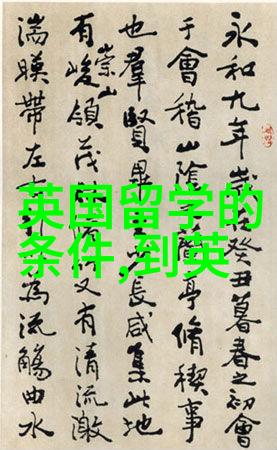 英国留学的
条件,到英
永和九年歲在癸丑暮春之初會
于會稽山陰亭脩禊事
也羣賢畢長咸集此地
有崇山峻領茂又有清流激
湍暎帶左右引為流觴曲水